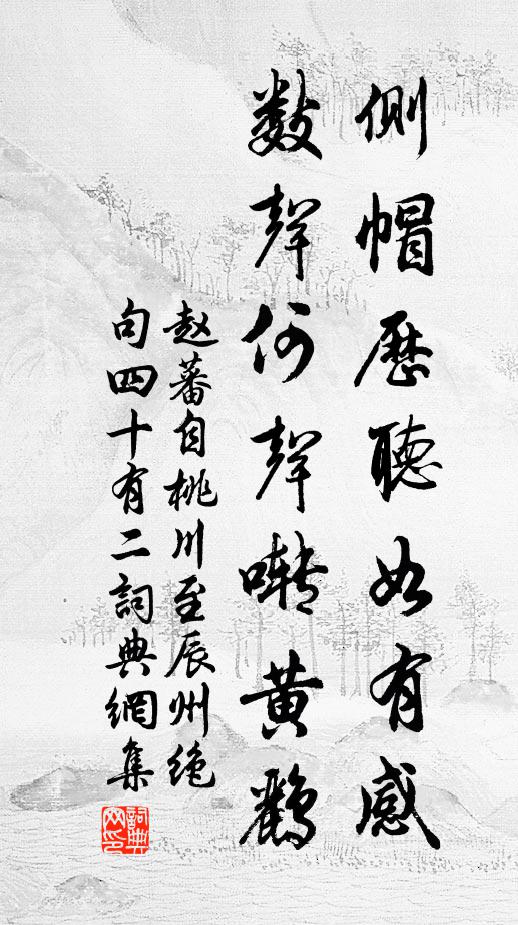 側帽歷聽如有感
數聲何聲囀黃鸝
趙蕃自桃川至辰州絶
句四十有二詞典網集
詞典
网印